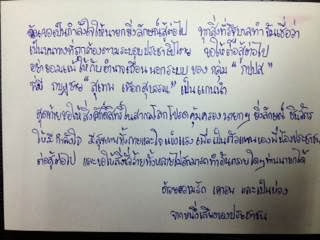 ฉันขอเป็นกำลังใจให้นายกยิ่งลักษณ์สู้ต่อไป จากสิ่งที่รัฐบาลทำ ฉันเชื่อว่า
เป็นแนวทางที่ถูกต้องตามระบอบประชาธิปไตย ขอให้ต่อสู้ต่อไป
อย่ายอมแพ้ ให้กับอำนาจเถื่อนนอกระบบ ของ กลุ่ม "กปปส"
ที่มี กบฏชื่อ "สุเทพ เทือกสุบรรณ" เป็นแกนนำ
สุดท้ายขอให้สิ่งศักดิ์สิทธิ์ในสากลโลกโปรดคุ้มครอง นายกฯ ยิ่งลักษณ์ ชินวัตร
ให้มีกำลังใจ มีสุขภาพทั้งกายและใจ แข็งแรง เพื่อเป็นตัวแทนของพี่น้องประชาชน
ต่อสู้ต่อไป และขอให้สิ่งชั่วร้ายทั้งหลายไม่สามารถทำอันตรายใดๆท่านนายกได้
ด้วยความรัก เคารพ และเป็นห่วง
จากหนึ่งเสียงของประชาชน